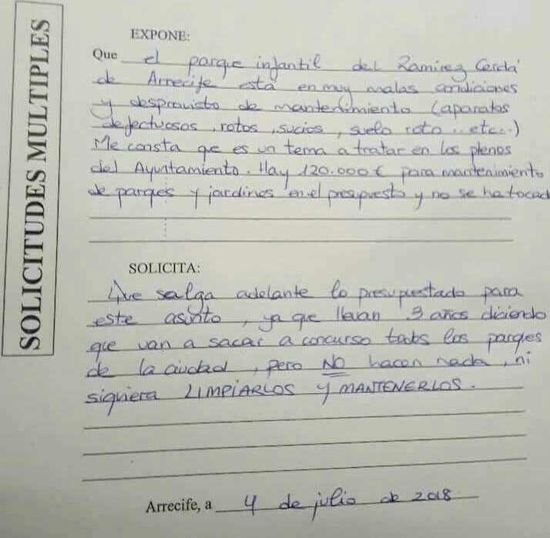 SOLICITUDES MULTIPLES
EXPONE:
Que el parque infantil del Ramirez Cerdá
de Arrecife está en muy malas condiciones
y desprovisto de mantenimiento (aparatos
defectuosos, rotos, sucios, suelo roto...etc...)
Me consta que es un tema a tratar en los plenos
del Ayuntamiento. Hay 120.000 € para mantenimiento
de parques y jardines en el presupuesto y no se ha tocad
SOLICITA:
Que salga adelante lo presupuestado para
este asunto, ya que llevan 3 años diciendo
que van a sacar a concurso todos los parques
de la ciudad, pero NO hacen nada, ni
siquiera LIMPIARLOS Y MANTENERLOS.
Arrecife, a 4 de julio de 2018